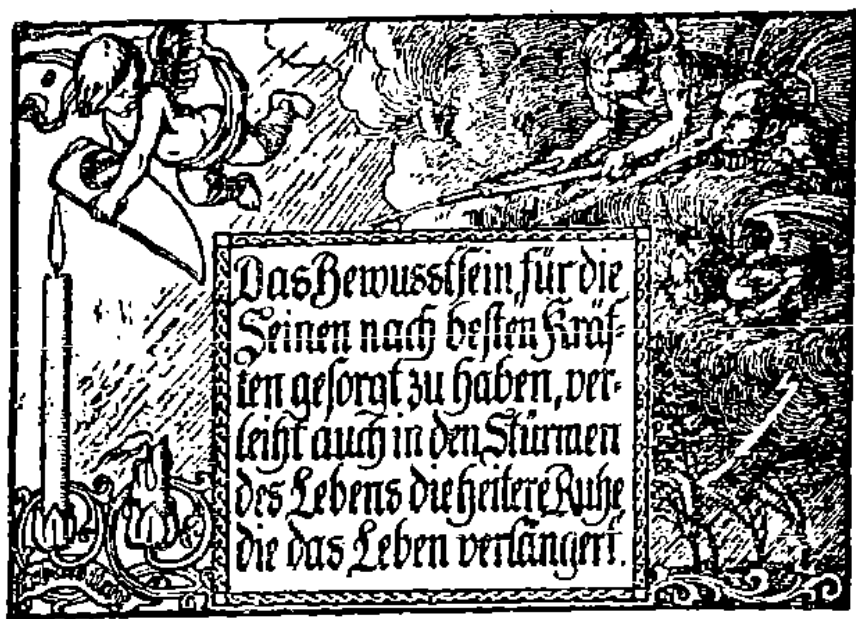 Das Bewusstsein, für die
Seinen nach besten Kräf-
ten gesorgt zu haben, ver-
leiht auch in den Stürmen
des Lebens die heitere Ruhe,
die das Leben verlängert.